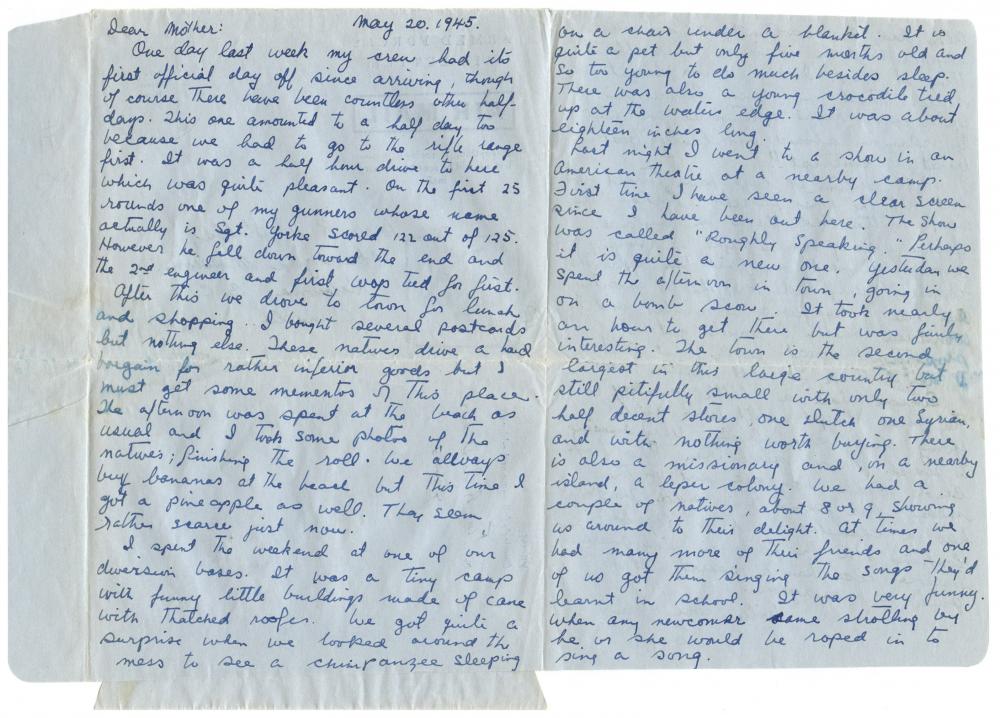 May 20. 1945.
Dear Mother:
One day last week my crew had its
first official day off since arriving, though
of course there have been countless other half-
days. This one amounted to a half day too
because we had to go to the rifle range
first. It was a half hour drive to here
which was quite pleasant. On the first 25
rounds one of my gunners whose name
actually is Sgt. Yorke scored 122 out of 125.
However he fell down toward the end and
the 2nd engineer and first wop tied for first.
After this we drove to town for lunch
and shopping. I bought several postcards
but nothing else. These natives drive a hard
bargain for rather inferior goods but I
must get some mementos of this place.
The afternoon was spent at the beach as
usual and I took some photos of the
natives; finishing the roll. We always
buy bananas at the beach but this time I
got a pineapple as well. They seem
rather scarce just now.
I spent the weekend at one of our
diversion bases. It was a tiny camp
with funny little buildings made of cane
with thatched roofs. We got quite a
surprise when we looked around the
mess to see a chimpanzee sleeping
on a chair under a blanket. It is
quite a pet but only five months old and
so too young to do much besides sleep.
There was also a young crocodile tied
up at the waters edge. It was about
eighteen inches long.
Last night I went to a show in an
American theatre at a nearby camp.
First time I have seen a clear screen
since I have been out here. The show
was called "Roughly Speaking." Perhaps
it is quite a new one. Yesterday we
spent the afternoon in town, going in
on a bomb scow. It took nearly
an hour to get there but was fairly
interesting. The town is the second
largest in this large country but
still pitifully small with only two
half decent stores, one dutch one Syrian,
and with nothing worth buying. There
is also a missionary and, on a nearby
island, a leper colony. We had a
couple of natives, about 8 or 9, showing
us around to their delight. At times we
had many more of their friends and one
of us got them singing the songs they'd
learnt in school. It was very funny.
When any newcomer came strolling by
he or she would be roped in to
sing a song.